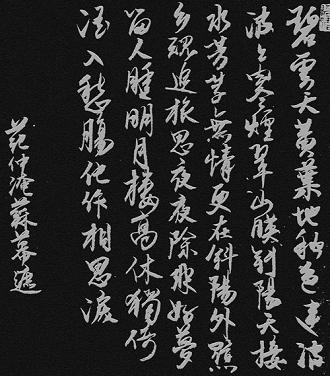 碧雲天黃葉地秋色連波
波上寒煙翠山映斜陽天接
水芳草無情更在斜陽外黯
鄉魂追旅思夜夜除非好夢
留人睡明月樓高休獨倚
酒入愁腸化作相思淚
范仲淹蘇幕遮